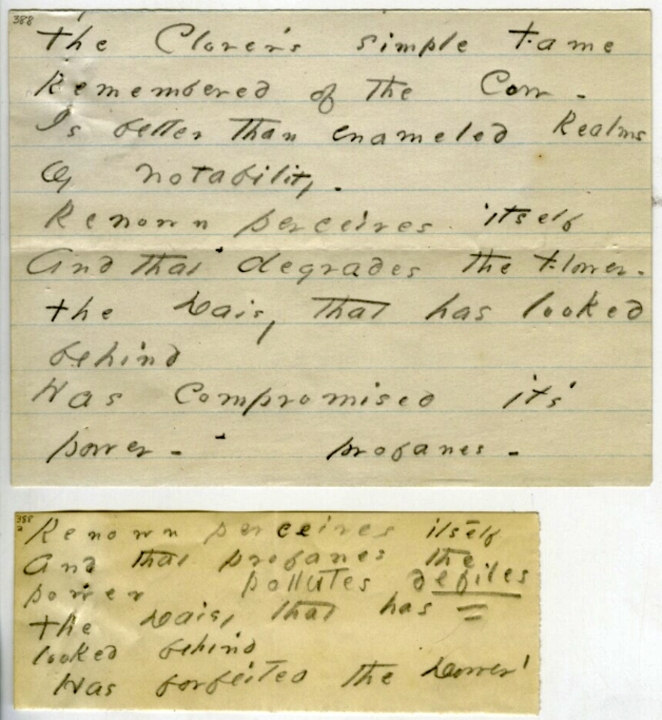 388
The Clover's simple Fame
Remembered of the Cow -
Is better than enameled Realms
Of notability.
Renown perceives itself
And that degrades the Flower -
The Daisy that has looked
behind
Has compromised it's
power - profanes -
388
a
Renown perceives itself
And that profanes the
power pollutes defiles
The Daisy that has =
looked behind
Has forfeited the Power'